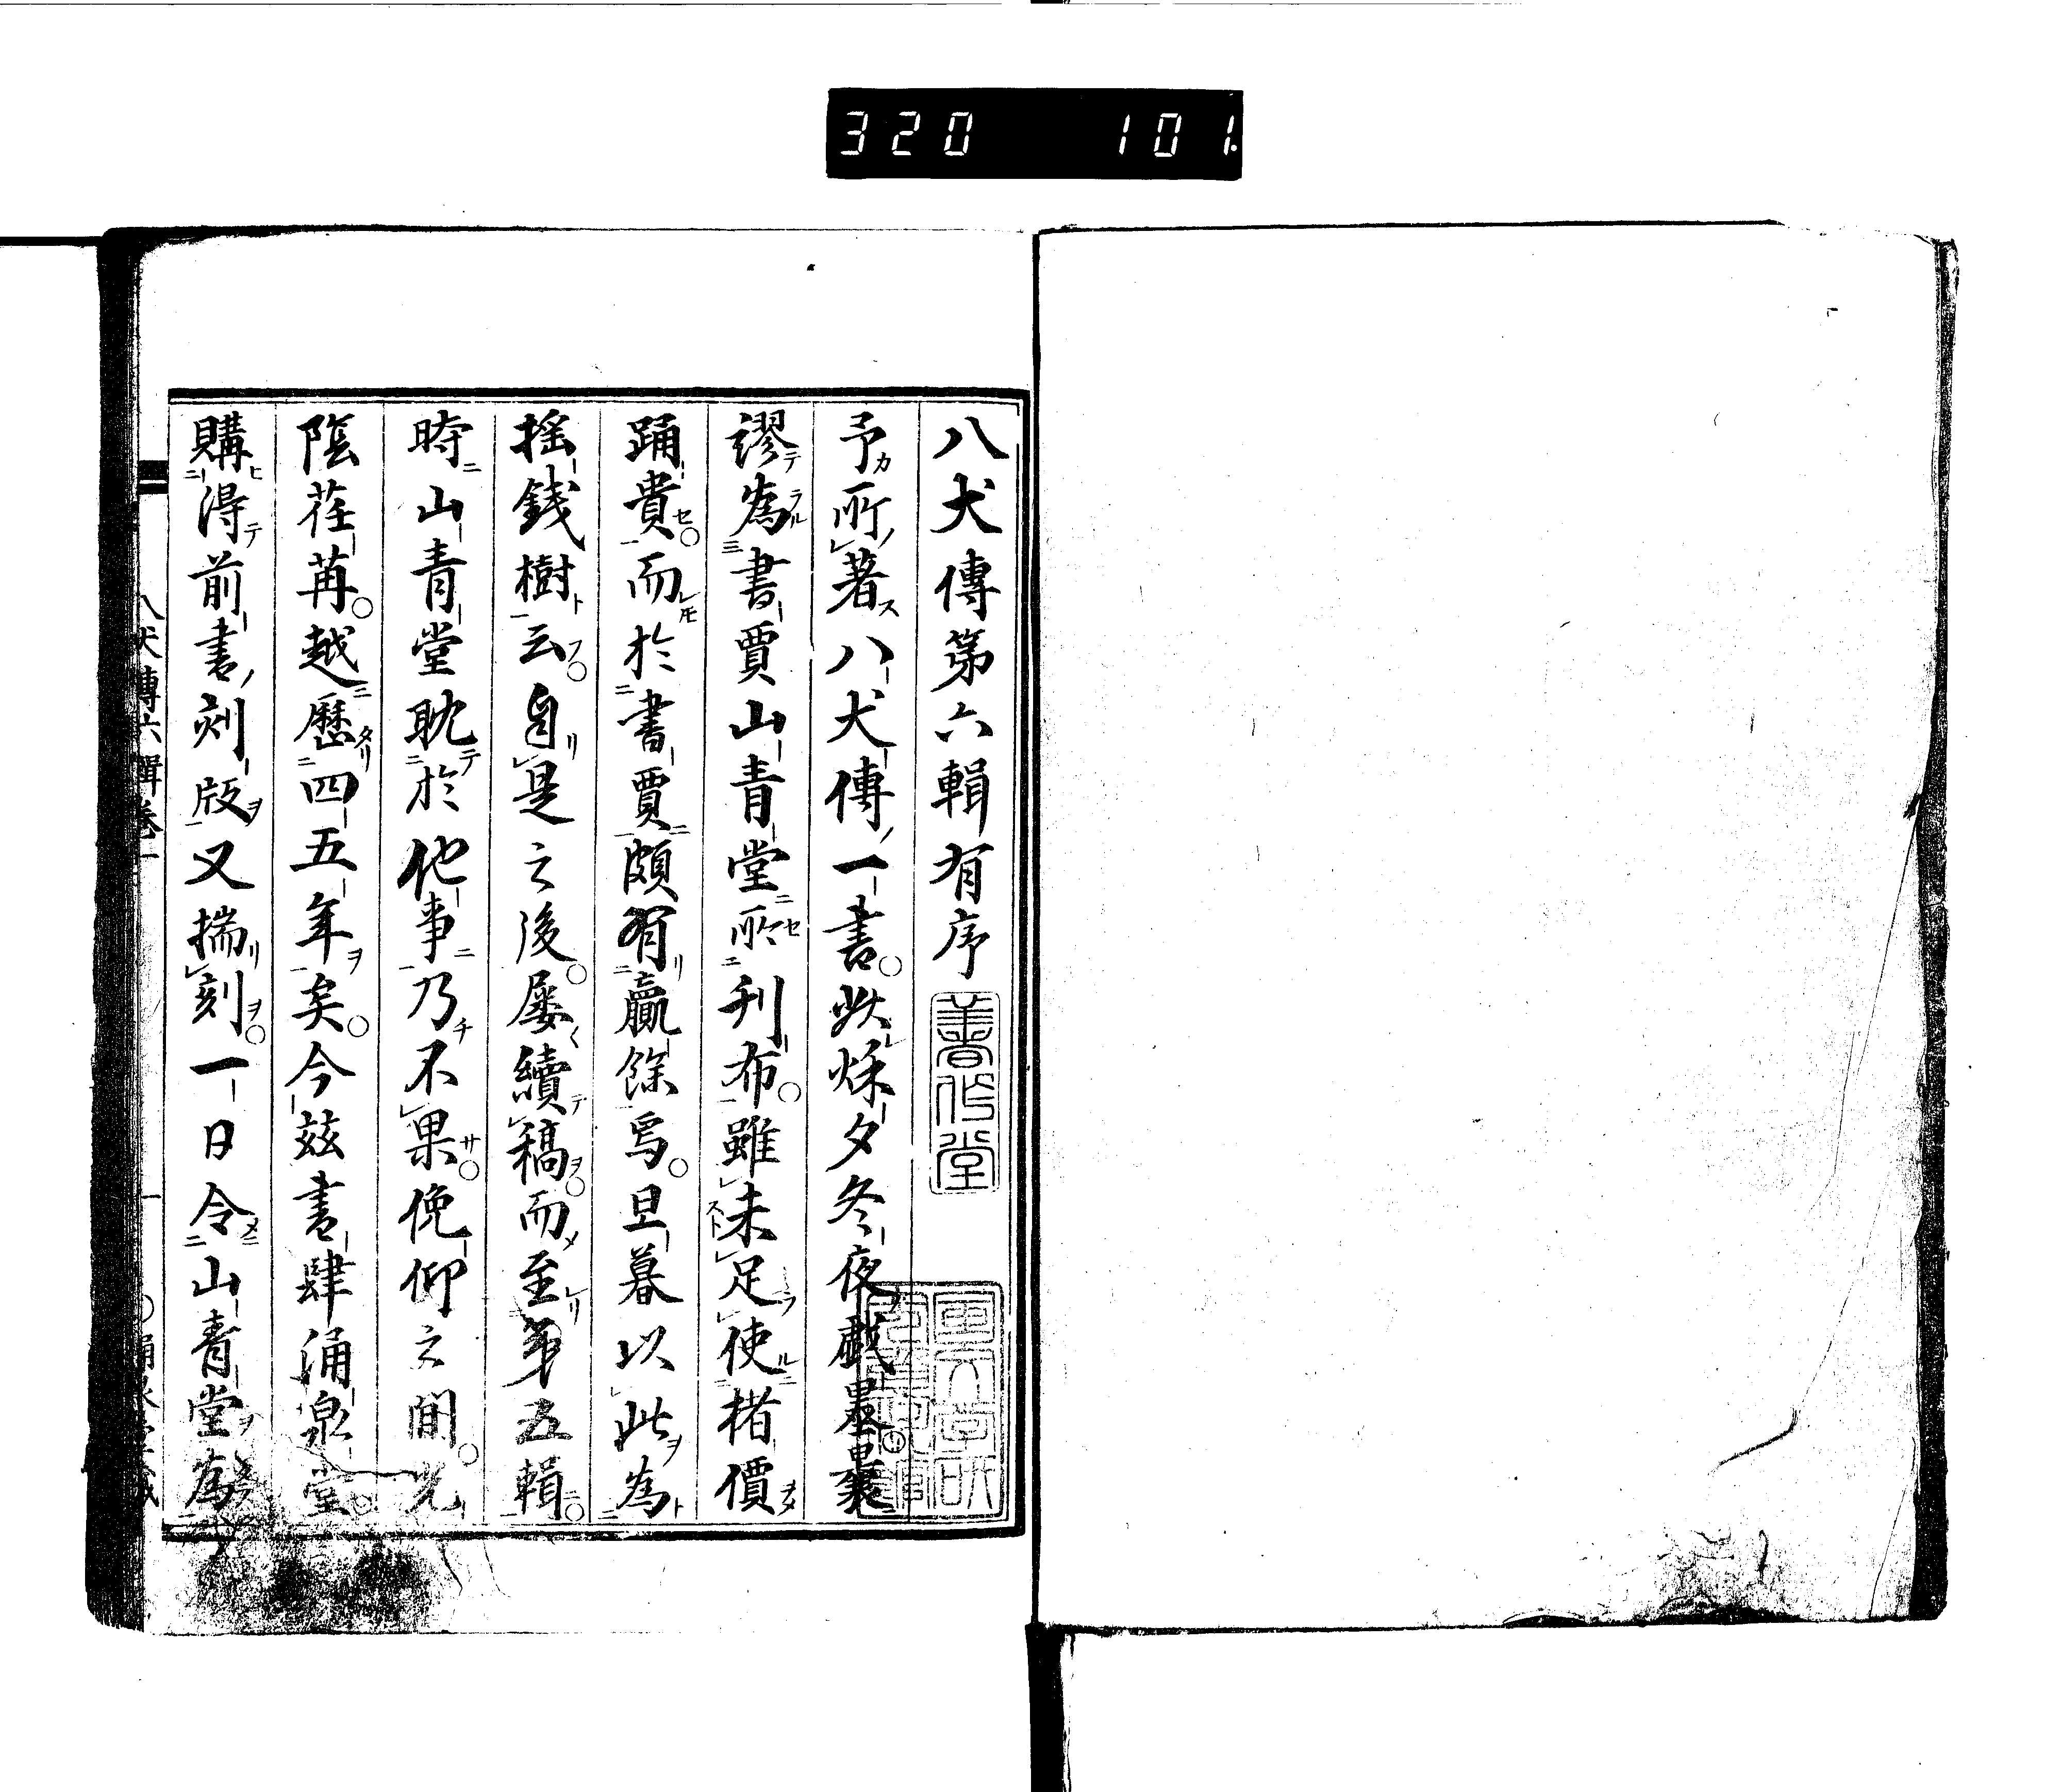 320 101.
八犬傳第六輯有序
予カ所ノ著ス八犬傳ノ一書○秌秌夕冬夜戲墨曩ニ
謬テ為ラル書賈山青堂ニ所セ刊布○雖未スト足ラ使ル楮價ヲメ
踊貴セ○而レモ於書賈ニ頗有リ贏餘焉○旦暮以此ヲ為ト
搖錢樹ト云フ○自リ是之後○屡〱續テ稿ヲ○而メ至レリ第五輯ニ○
時ニ山青堂耽テ於他事ニ乃チ不果サ○俛仰之間○光
陰荏苒○越ニ歷タリ四五年ヲ矣○今茲書肆涌泉堂○
購ヒ得テ前書ノ刻版ヲ又揣リ刻ヲ○一日令メ山青堂ヲ為
八犬傳六輯卷一
一